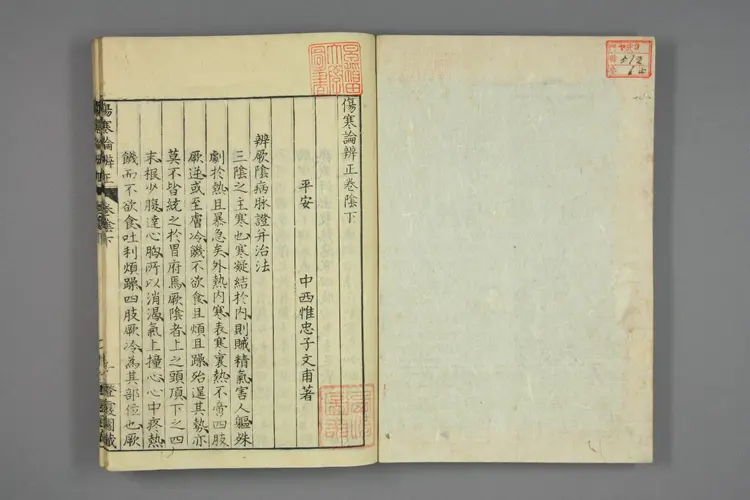 傷寒論辨正卷陰下
平安 中西惟忠子文甫著
辨厥陰病脉證并治法
三陰之主寒也寒凝結於内則賊精氣害人軀殊
劇於熱且暴急矣外熱内寒表寒裏熱不啻四肢
厥逆或至膚冷饑不欲食且煩且躁殆逞其勢亦
莫不皆統之於胃府焉厥陰者上之頭頂下之四
末根少腹達心胸所以消渴氣上撞心心中疼熱
饑而不欲食吐利煩躁四肢厥冷為其部位也厥
傷寒論辨正